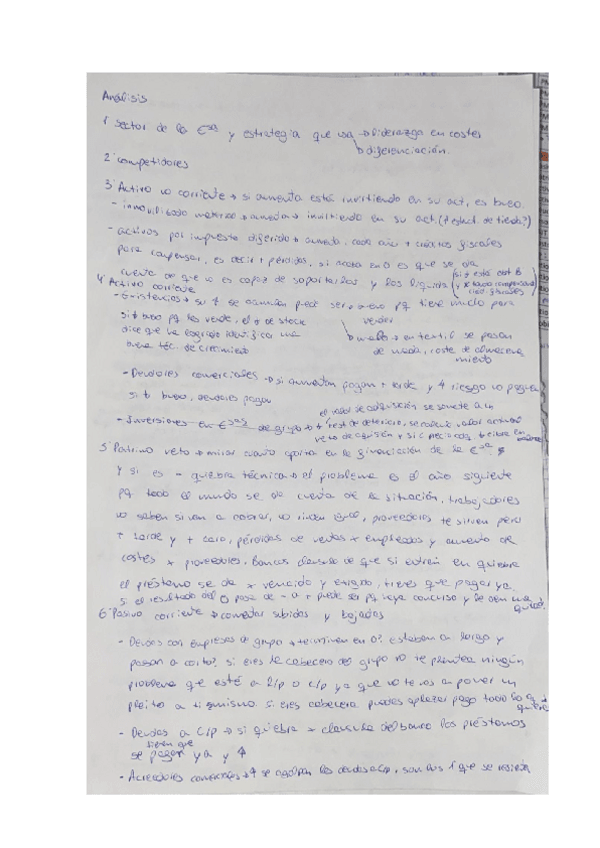 Análisis
1 sector de la Eªª y estrategia que usa → liderazgo en costes
→ diferenciación.
2 competidores
3 Activo no corriente → si aumenta está invirtiendo en su act, es bueno
- inmovilizado material → aumenta → invirtiendo en su act. (de tienda?)
- activos por impuesto diferido → aumenta, cada año + créditos fiscales
para compensar, es decir + pérdidas, si es que se da
cuenta de que no es capaz de soportarlas y los liquida (si ↑ está
4 Activo corriente
- Existencias → su ↑ se acumulan puede ser → bueno pq tiene mucho para
vender
si ↓ bueno pq las vende, el de stock
dice que ha logrado identificar una
buena téc. de crecimiento
→ malo → en textil se pasan
de moda, coste de almacena
miento
- Deudores comerciales → si aumentan pagan + tarde y ↑ riesgo no paguen
si ↓ bueno, deudores pagan
- Inversiones en Eªªˢ de grupo → el valor de adquisición se somete a un
test de deterioro,
5 Patrimo neto → mirar cuanto aporta en la financiación de la Eªª
y si es - quiebra técnica → el problema es el año siguiente
pq todo el mundo se da cuenta de la situación, trabajadores
no saben si van a cobrar, no rinden igual, proveedores te sirven pero
+ tarde y + caro, pérdidas de ventas x empleados y aumento de
costes x proveedores. Bancos clausula de que si entran en quiebra
el préstamo se da x vencido y exigido, tienes que pagar ya.
si el resultado del pasa de - a + puede ser pq haya concurso y le den una
quita
6 Pasivo corriente → comentar subidas y bajadas
- Deudas con empresas de grupo → terminan en 0? estaban a largo y
pasan a corto? si eres la cabecera del grupo no te plantea ningún
problema que esté a l/p o c/p ya que no te vas a poner un
pleito a ti mismo. si eres cabecera puedes aplazar pago todo lo q
quieras
- Deudas a c/p → si quiebra x clausula del banco los préstamos
tienen que
se pagan ya y ↑
- Acreedores comerciales → ↑ se agolpan las deudas c/p, son los 1º que se